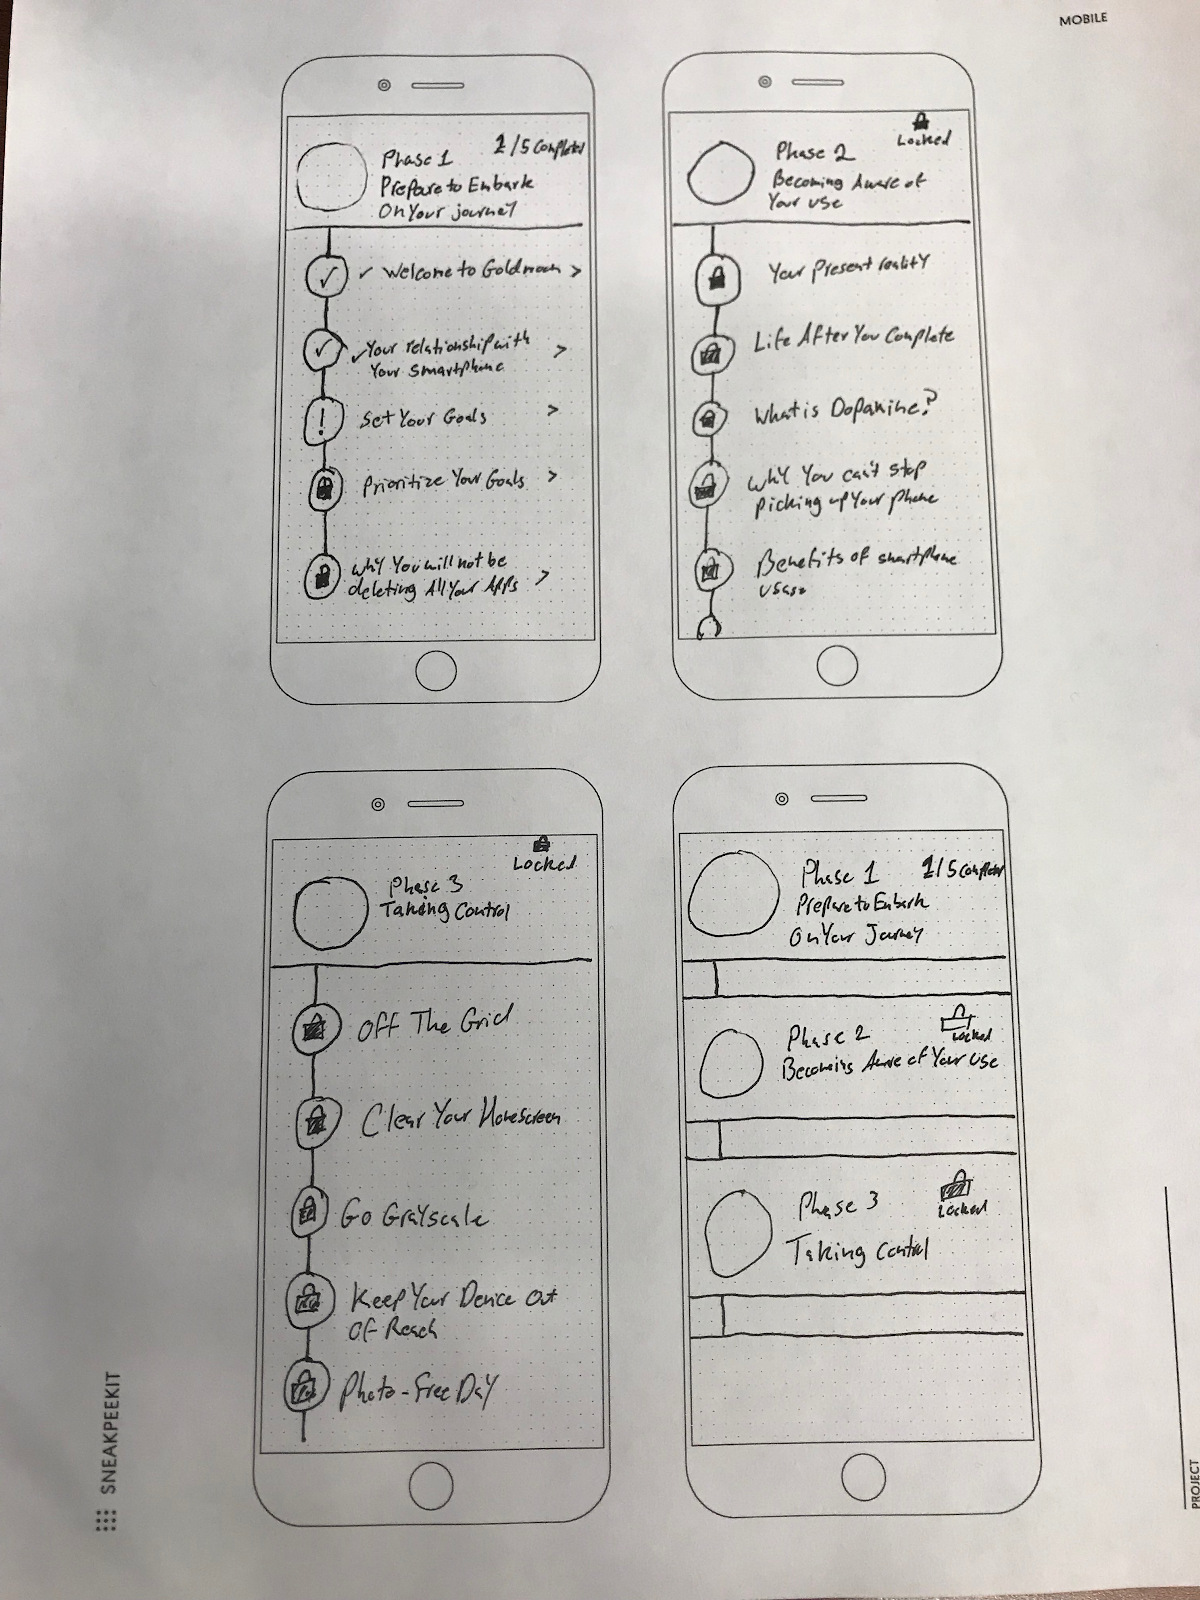 MOBILE
Phase 1
1/5 Completed
Prepare to Embark
On Your journey
✓ Welcome to Goldmoon >
✓ Your relationship with >
Your smartphone
! Set Your Goals >
Prioritize Your Goals >
Why You will not be
deleting All Your Apps >
Locked
Phase 2
Becoming Aware of
Your use
Your Present reality
Life After You Complete
What is Dopamine?
Why You can't stop
picking up Your phone
Benefits of smartphone
usage
Locked
Phase 3
Taking Control
Off The Grid
Clear Your Homescreen
Go Grayscale
Keep Your Device Out
Of Reach
Photo-Free Day
Phase 1
1/5 Completed
Prepare to Embark
On Your Journey
Phase 2
Locked
Becoming Aware of Your Use
Phase 3
Locked
Taking Control
SNEAKPEEKIT
PROJECT